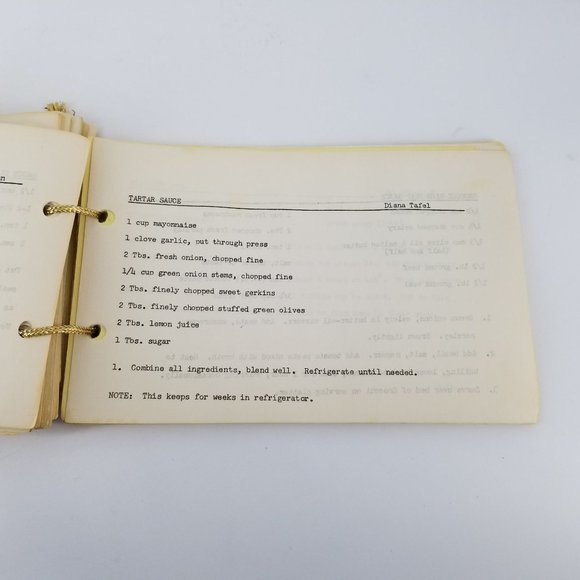 TARTAR SAUCE Diana Tafel
1 cup mayonnaise
1 clove garlic, put through press
2 Tbs. fresh onion, chopped fine
1/4 cup green onion stems, chopped fine
2 Tbs. finely chopped sweet gerkins
2 Tbs. finely chopped stuffed green olives
2 Tbs. lemon juice
1 Tbs. sugar
1. Combine all ingredients, blend well. Refrigerate until needed.
NOTE: This keeps for weeks in refrigerator.